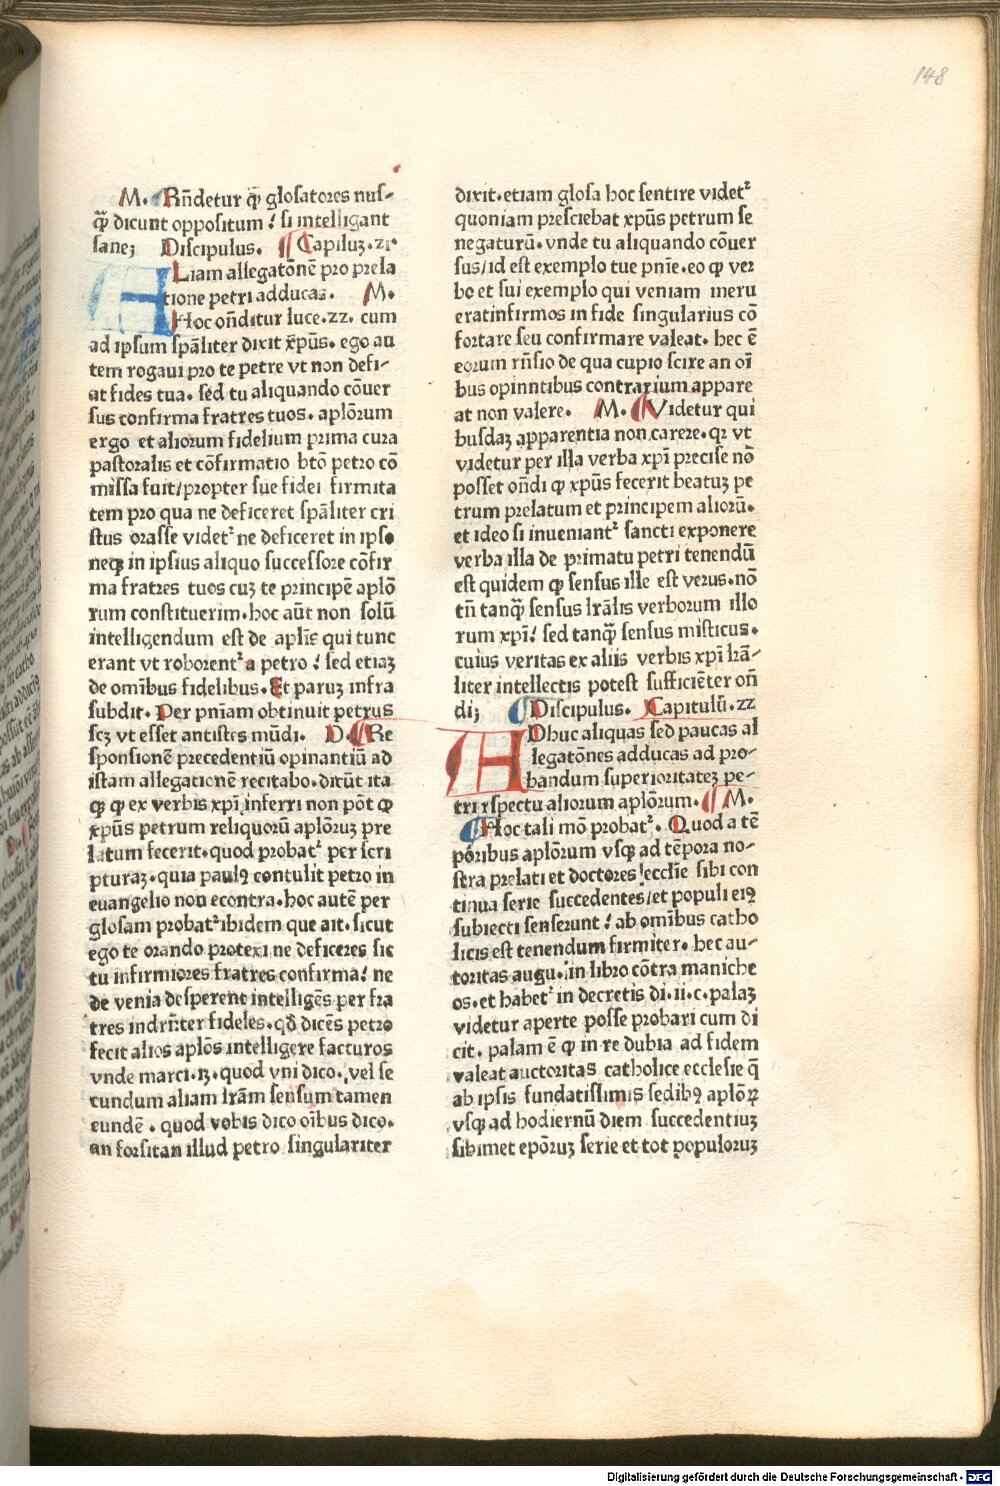 148
M. Rn̄detur q̄ glosatores nus-
q̄ dicunt oppositum ! si intelligant
sane; Discipulus. Capituluꝫ.zi.
ALiam allegatōnē pro prela
tione petri adducas. M.
Hoc on̄ditur luce.zz. cum
ad ipsum spāliter dixit xp̄us. ego au
tem rogaui pro te petre vt non defi-
at fides tua. sed tu aliquando cōuer
sus confirma fratres tuos. aplōrum
ergo et aliorum fidelium prima cura
pastoralis et cōfirmatio btō petro cō
missa fuit/propter sue fidei firmita
tem pro qua ne deficeret spāliter cri
stus orasse videtᷣ ne deficeret in ipso
neqꝫ in ipsius aliquo successore cōfir
ma fratres tuos cuꝫ te principē aplō
rum constituerim. hoc aūt non solū
intelligendum est de aplīs qui tunc
erant vt roborentᷣ a petro ! sed etiaꝫ
de omībus fidelibus. Et paruꝫ infra
subdit. Per pn̄iam obtinuit petrus
scꝫ vt esset antistes mūdi. D. Re
sponsionē precedentiū opinantiū ad
istam allegationē recitabo. dicūt ita
qꝫ ꝙ ex verbis xp̄i inferri non pōt ꝙ
xp̄us petrum reliquorū aplōruꝫ pre
latum fecerit. quod probatᷣ per scri
pturaꝫ. quia paulꝯ contulit petro in
euangelio non econtra. hoc autē per
glosam probatᷣ ibidem que ait. sicut
ego te orando protexi ne deficeres sic
tu infirmiores fratres confirma! ne
de venia desperent intelligēs per fra
tres indrn̄ter fideles. qd̄ dicēs petro
fecit alios aplōs intelligere facturos
vnde marci.iꝫ. quod vni dico. vel se
cundum aliam lrām sensum tamen
eundē . quod vobis dico oībus dico.
an forsitan illud petro singulariter
dixit. etiam glosa hoc sentire videtᷣ
quoniam presciebat xp̄us petrum se
negaturū. vnde tu aliquando cōuer
sus/id est exemplo tue pn̄ie. eo ꝙ ver
bo et sui exemplo qui veniam meru
erat infirmos in fide singularius cō
fortare seu confirmare valeat. hec ē
eorum rn̄sio de qua cupio scire an oī
bus opinntibus contrarium appare
at non valere. M. Videtur qui
busdaꝫ apparentia non carere. qꝛ vt
videtur per illa verba xp̄i precise nō
posset on̄di ꝙ xp̄us fecerit beatuꝫ pe
trum prelatum et principem aliorū.
et ideo si inueniantᷣ sancti exponere
verba illa de primatu petri tenendū
est quidem ꝙ sensus ille est verus. nō
tn̄ tanq̄ sensus lrālis verborum illo
rum xp̄i! sed tanq̄ sensus misticus.
cuius veritas ex aliis verbis xp̄i lrā-
liter intellectis potest sufficiēter on̄
di; Discipulus. Capitulū.zz
ADhuc aliquas sed paucas al
legatōnes adducas ad pro-
bandum superioritateꝫ pe-
tri rspectu aliorum aplōrum. M.
Hoc tali mō probatᷣ. Quod a tē
pōribus aplōrum vsqꝫ ad tēpora no-
stra prelati et doctores ecclsīe sibi con
tinua serie succedentes/et populi eiꝯ
subiecti senserunt ! ab omībus catho
licis est tenendum firmiter. hec au-
toritas augu. in libro cōtra maniche
os. et habetᷣ in decretis di.ii.c.palaꝫ
videtur aperte posse probari cum di
cit. palam ē ꝙ in re dubia ad fidem
valeat auctoritas catholice ecclesie q̄
ab ipsis fundatissimis sedibꝯ aplōꝝ
vsqꝫ ad hodiernū diem succedentiuꝫ
sibimet epōruꝫ serie et tot populoruꝫ
Digitalisierung gefördert durch die Deutsche Forschungsgemeinschaft - DFG